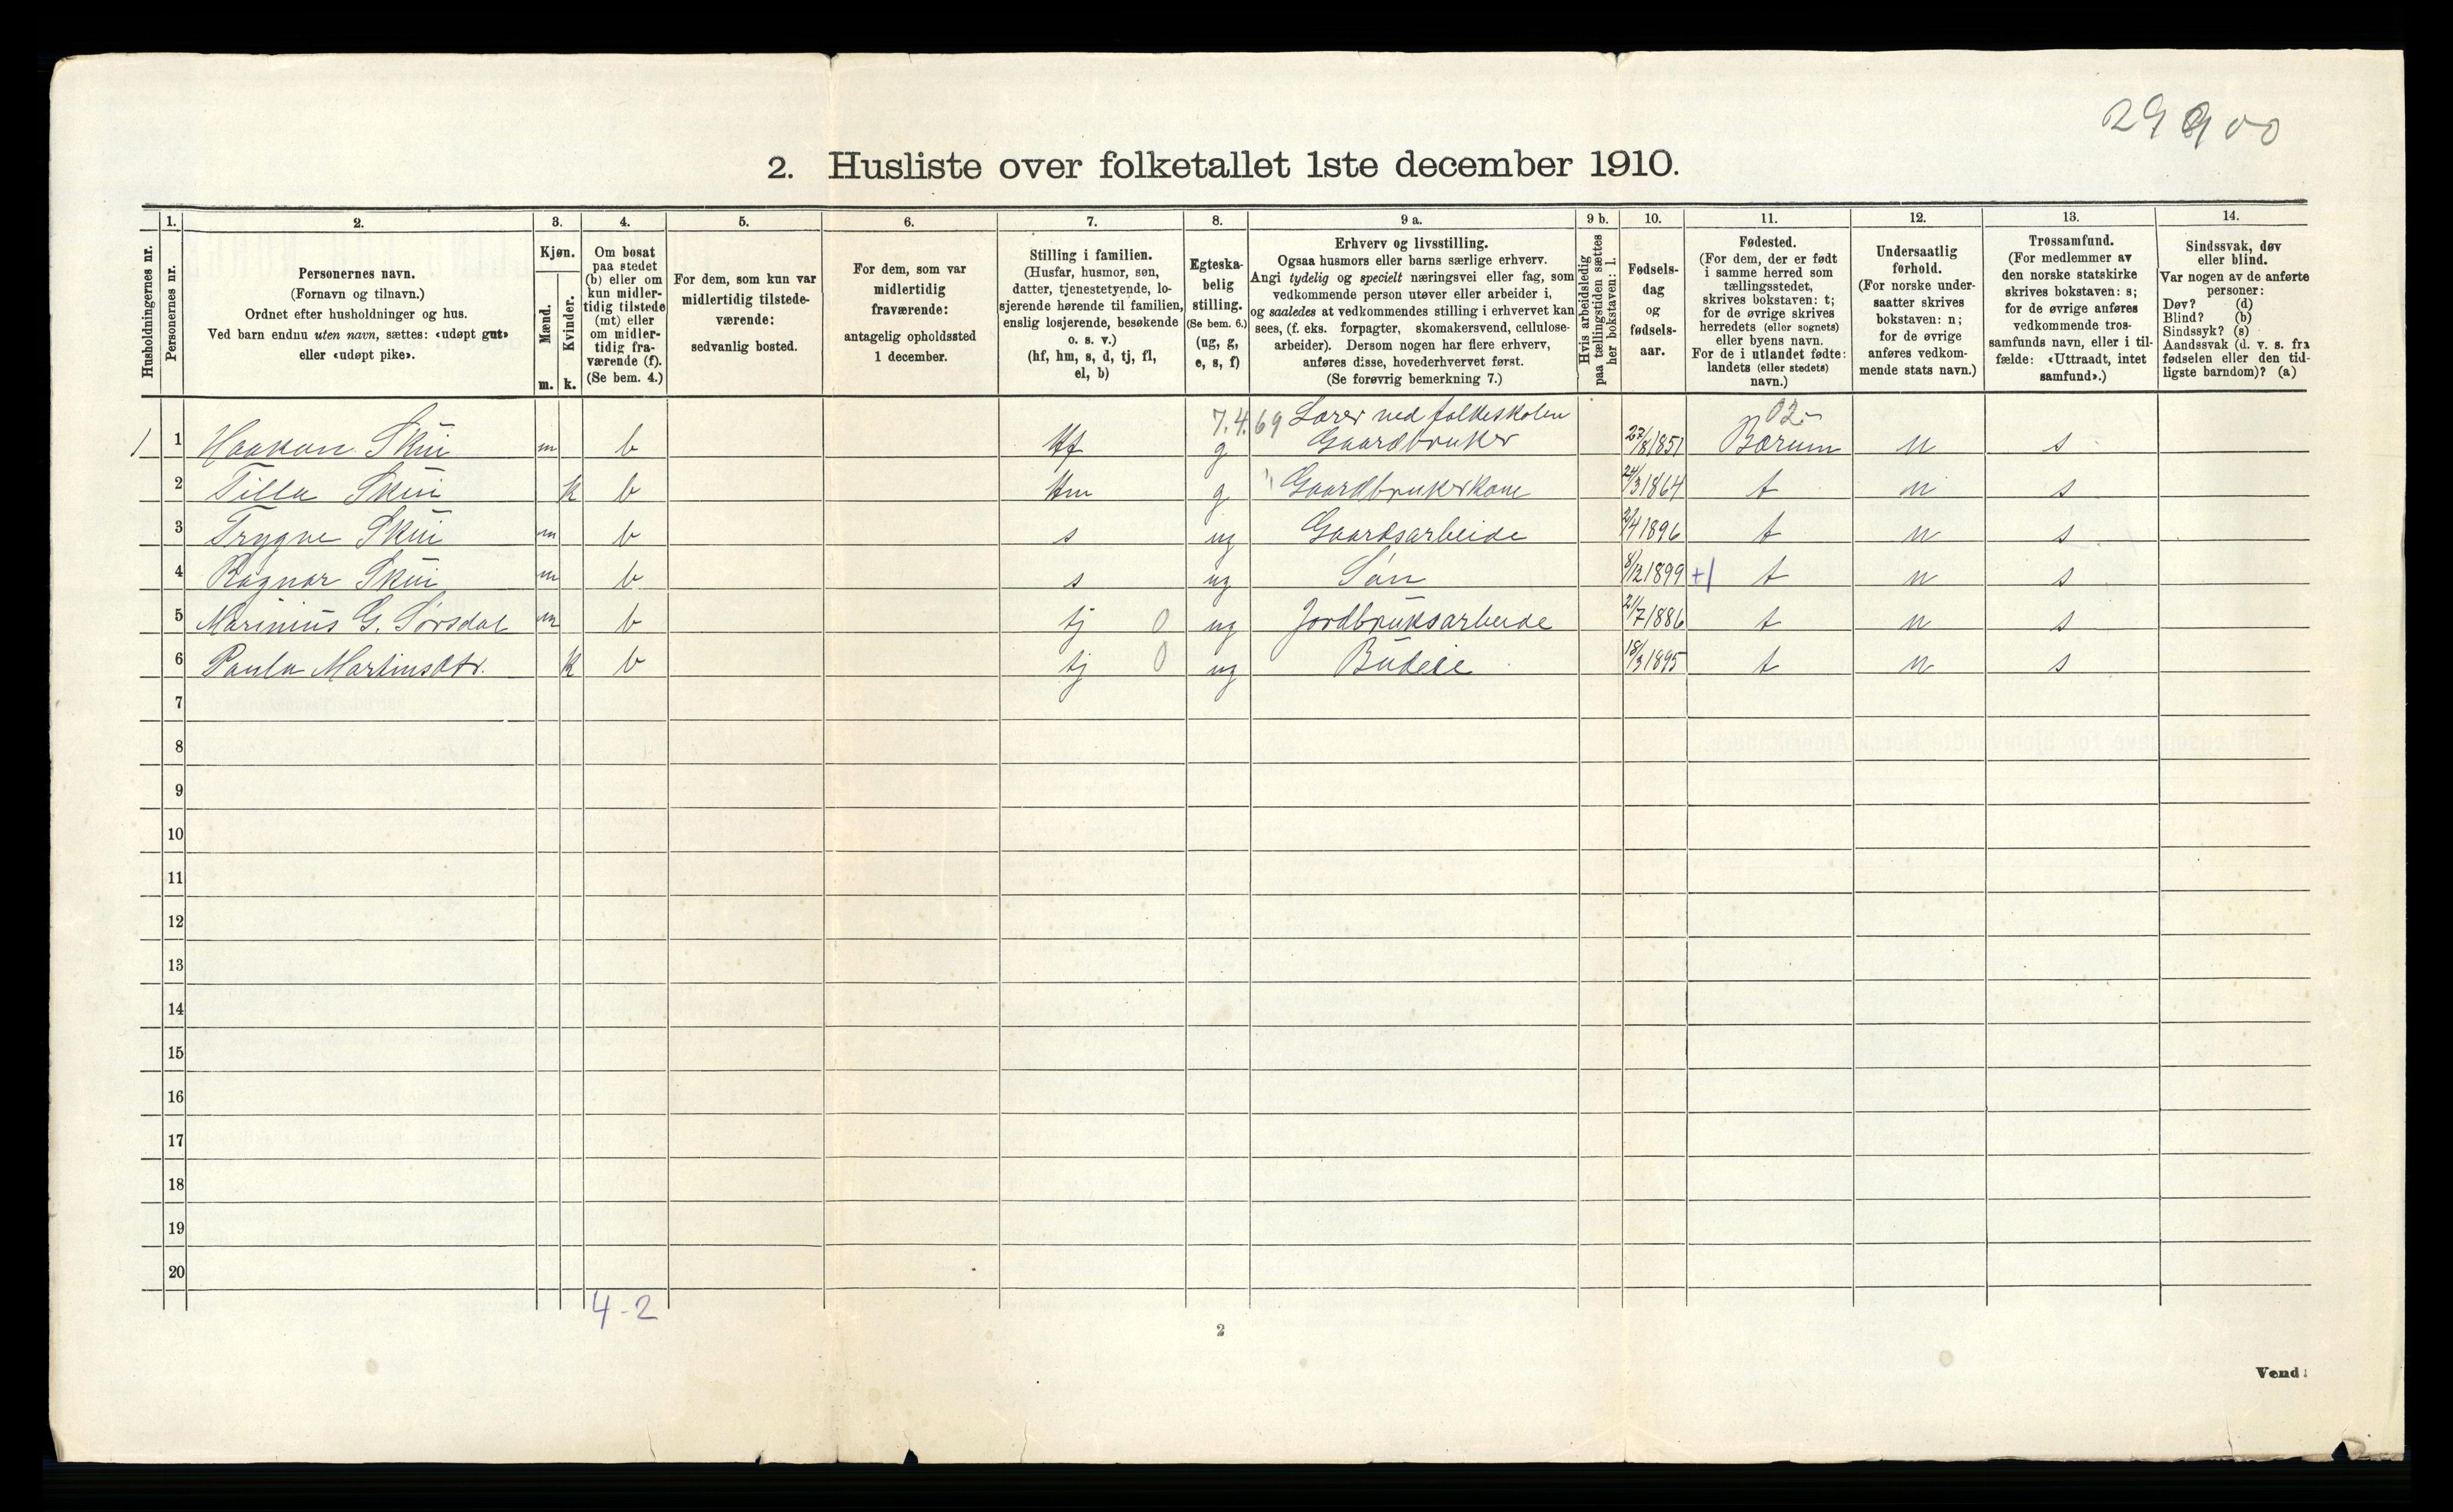 29 9 00
2. Husliste over folketallet 1ste december 1910.
Husholdningernes nr.
1.
Personernes nr.
2.
Personernes navn.
(Fornavn og tilnavn.)
Ordnet efter husholdninger og hus.
Ved barn endnu uten navn, sættes: «udøpt gut»
eller «udøpt pike».
3.
Kjøn.
Mænd.
Kvinder.
m. k.
4.
Om bosat
paa stedet
(b) eller om
kun midler-
tidig tilstede
(mt) eller
om midler-
tidig fra-
værende (f).
(Se bem. 4.)
5.
For dem, som kun var
midlertidig tilstede-
værende:
sedvanlig bosted.
6.
For dem, som var
midlertidig
fraværende:
antagelig opholdssted
1 december.
7.
Stilling i familien.
(Husfar, husmor, søn,
datter, tjenestetyende, lo-
sjerende hørende til familien,
enslig losjerende, besøkende
o. s. v.)
(hf, hm, s, d, tj, fl,
el, b)
8.
Egteska-
belig
stilling.
(Se bem. 6.)
(ug, g,
e, s, f)
9 a.
Erhverv og livsstilling.
Ogsaa husmors eller barns særlige erhverv.
Angi tydelig og specielt næringsvei eller fag, som
vedkommende person utøver eller arbeider i,
og saaledes at vedkommendes stilling i erhvervet kan
sees, (f. eks. forpagter, skomakersvend, cellulose-
arbeider). Dersom nogen har flere erhverv,
anføres disse, hovederhvervet først.
(Se forøvrig bemerkning 7.)
9 b.
Hvis arbeidsledig
paa tællingstiden sættes
her bokstaven: l.
10.
Fødsels-
dag
og
fødsels-
aar.
11.
Fødested.
(For dem, der er født
i samme herred som
tællingsstedet,
skrives bokstaven: t;
for de øvrige skrives
herredets (eller sognets)
eller byens navn.
For de i utlandet fødte:
landets (eller stedets)
navn.)
12.
Undersaatlig
forhold.
(For norske under-
saatter skrives
bokstaven: n;
for de øvrige
anføres vedkom-
mende stats navn.)
13.
Trossamfund.
(For medlemmer av
den norske statskirke
skrives bokstaven: s;
for de øvrige anføres
vedkommende tros-
samfunds navn, eller i til-
fælde: «Uttraadt, intet
samfund».)
14.
Sindssvak, døv
eller blind.
Var nogen av de anførte
personer:
Døv? (d)
Blind? (b)
Sindssyk? (s)
Aandssvak (d. v. s. fra
fødselen eller den tid-
ligste barndom)? (a)
7.4.69 Lærer ved folkeskolen 02-
1 1 Haakon Skui m b hf g Gaardbruker 27/8 1851 Bærum n s
2 Tilla Skui k b hm g Gaardbrukerkone 24/3 1864 t n s
3 Trygve Skui m b s ug Gaardsarbeide 2/4 1896 t n s
4 Ragnar Skui m b s ug Søn 8/12 1899 +1 t n s
5 Marinius G. Sørsdal m b tj 0 ug Jordbruksarbeide 21/7 1886 t n s
6 Paula Martinsdtr. k b tj 0 ug Budeie 18/3 1895 t n s
7
8
9
10
11
12
13
14
15
16
17
18
19
20
4-2
2
Vend!